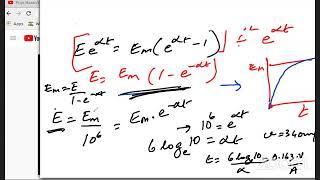 [E e^αt = Em(e^αt - 1)] ÷ e^αt
E = Em (1 - e^-αt)
Em = E / 1 - e^-αt
Em
t
E = Em / 10^6 = Em · e^-αt
→ 10^6 = e^αt
6 log_e 10 = αt
t = 6 log 10 / α = 0.163 · V / A